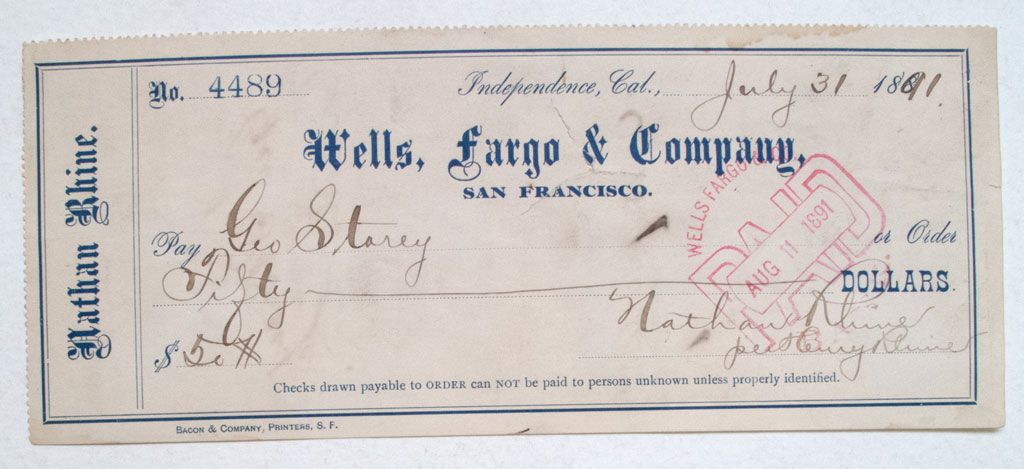 No. 4489
Independence, Cal., July 31 1891.
Nathan Rhine.
Wells, Fargo & Company,
SAN FRANCISCO.
Pay Geo Storey or Order
Fifty DOLLARS.
WELLS FARGO
PAID
AUG 11 1891
$ 50
Nathan Rhine
per Henry Rhine
Checks drawn payable to ORDER can NOT be paid to persons unknown unless properly identified.
BACON & COMPANY, PRINTERS, S. F.